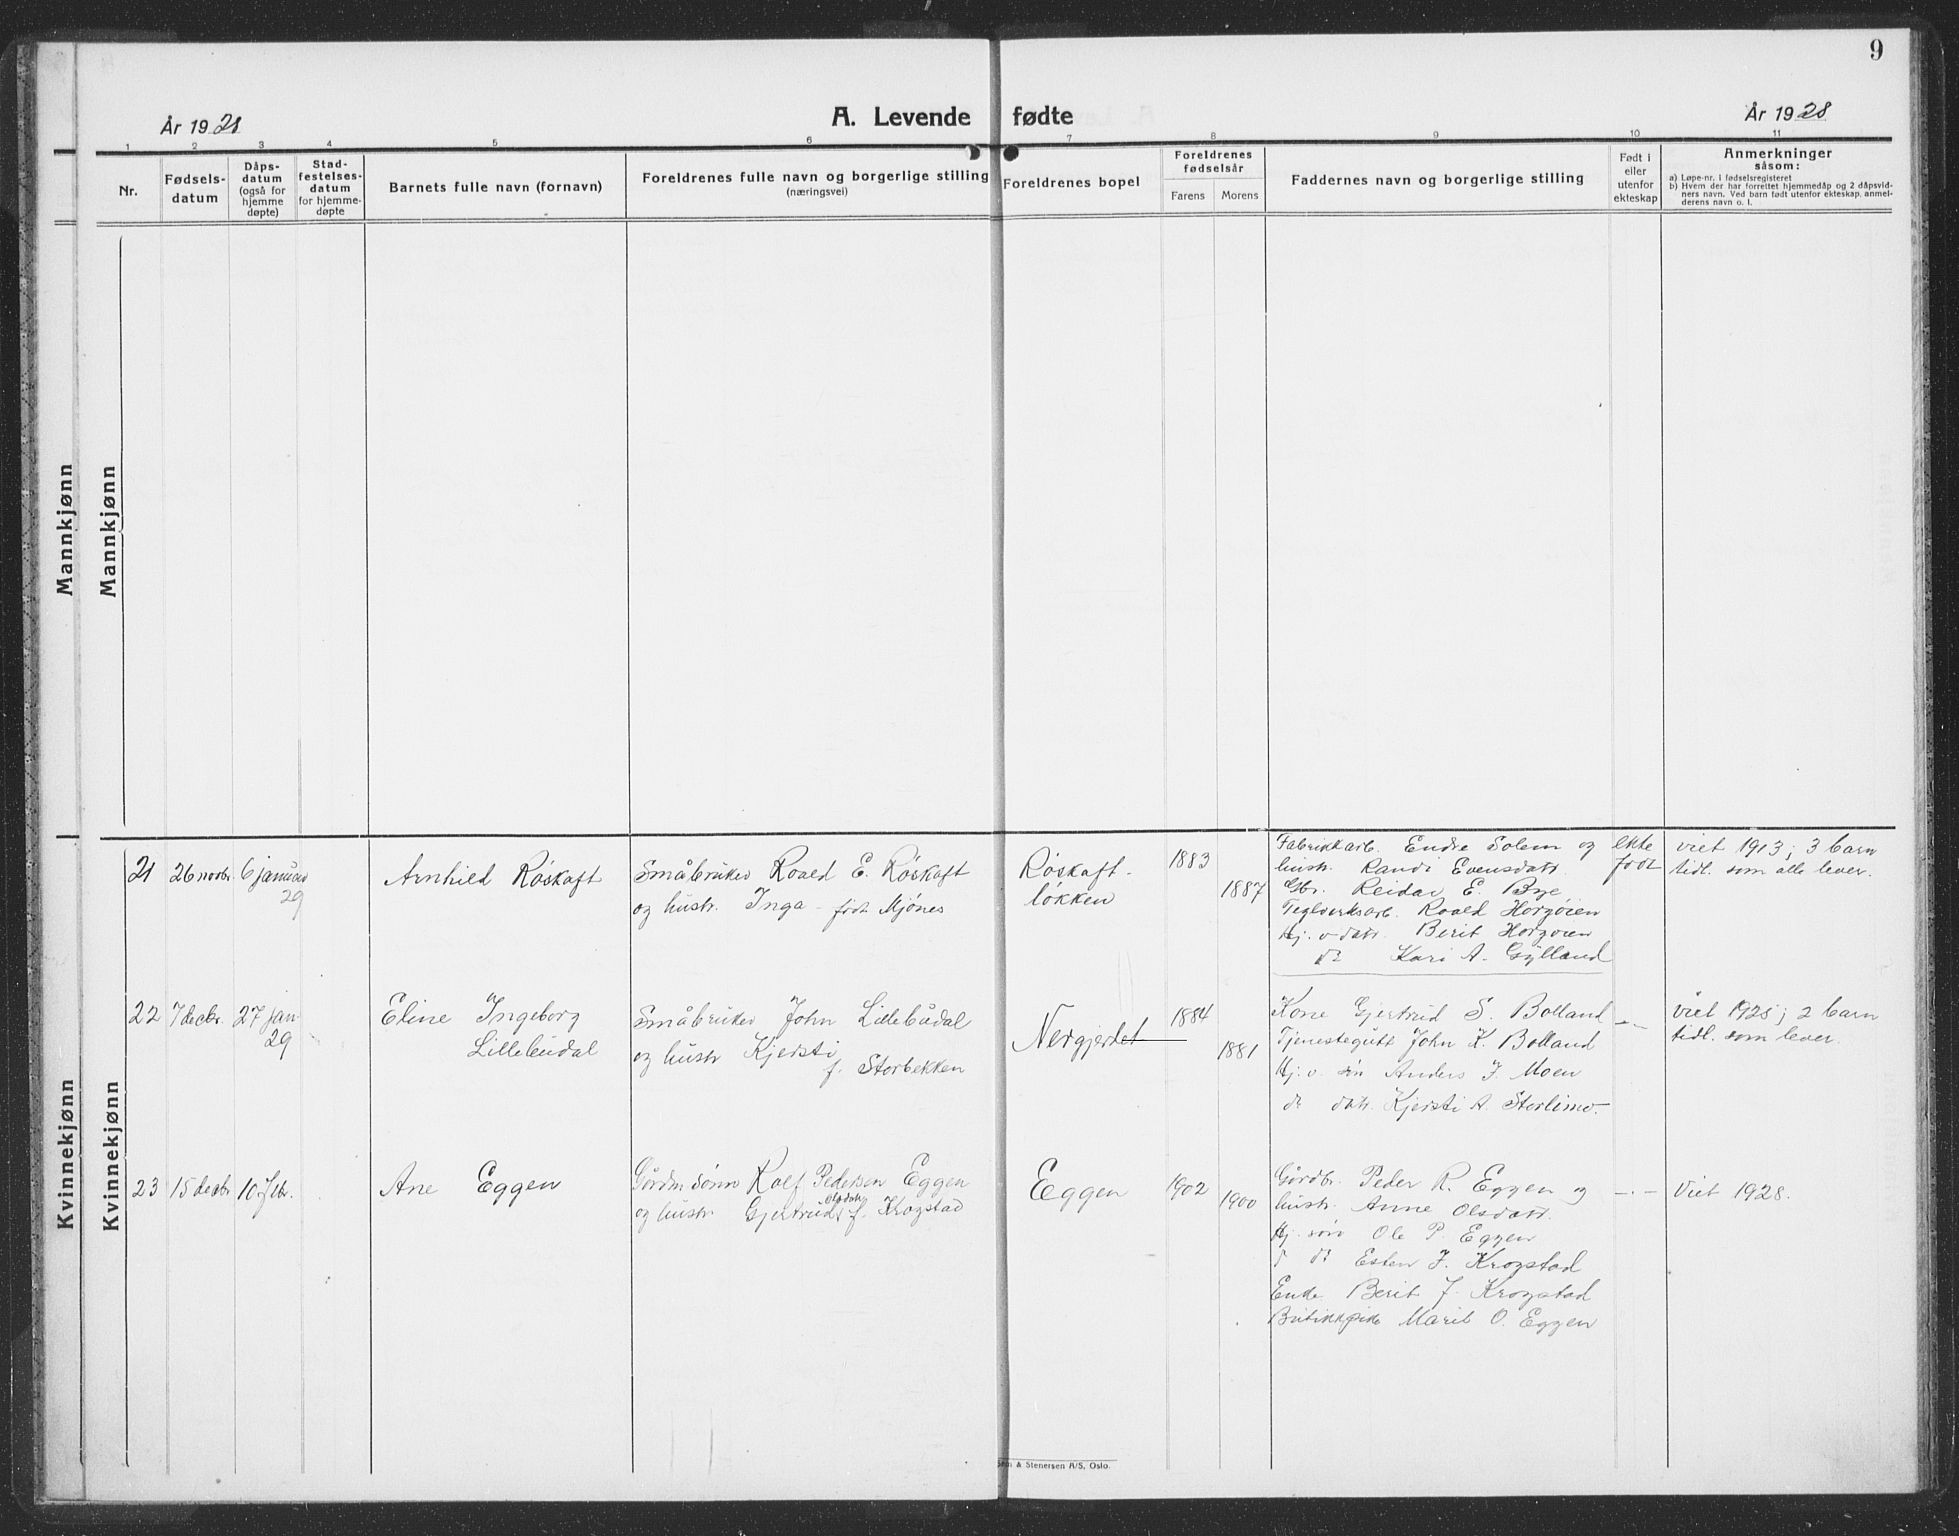 9
År 1928
A. Levende fødte
År 1928
1 2 3 4 5 6 7 8 9 10 11
Nr.
Fødsels-
datum
Dåps-
datum
(også for
hjemme
døpte)
Stad-
festelses-
datum
for hjemme-
døpte
Barnets fulle navn (fornavn)
Foreldrenes fulle navn og borgerlige stilling
(næringsvei)
Foreldrenes bopel
Foreldrenes
fødselsår
Farens Morens
Faddernes navn og borgerlige stilling
Født i
eller
utenfor
ekteskap
Anmerkninger
såsom:
a) Løpe-nr. i fødselsregisteret
b) Hvem der har forrettet hjemmedåp og 2 dåpsvid-
ners navn. Ved barn født utenfor ekteskap, anmel-
derens navn o. l.
Mannkjønn
Mannkjønn
Kvinnekjønn
Kvinnekjønn
21 26 novbr. 6 januar
29
Arnhild Röskaft
Småbruker Roald E. Röskaft
og hustr. Inga - födt Mjönes
Röskaft-
lökken
1883
1887
Fabrikkarb. Endre Solem og
hustr. Randi Evensdatr.
Gbr. Reidar E. Bye
Teglverksarb. Roald Horgöien
Hj. v. datr. Berit Horgöien
do Kari A. Gylland
ekte
födt
viet 1913; 3 barn
tidl. som alle lever.
22 7 decbr. 27 jan.
29
Eline Ingeborg
Lillebudal
Småbruker John Lillebudal
og hustr Kjersti
f. Storbekken
Nergjerdet
1884
1881
Kone Gjertrud S. Bolland
Tjenestegutt John K. Bolland
Hj. v. sön Anders J. Moen
do datr. Kjersti A. Storlimo.
- " -
viet 1925; 2 barn
tidl. som lever.
23 15 decbr 10 febr.
Ane Eggen
Gårdm. sönn Rolf Pedersen Eggen
og hustr. Gjertrud Olsdtr. f. Krogstad
Eggen
1902
1900
Gårdbr. Peder R. Eggen og
hustr. Anne Olsdatr.
Hj. sönn Ole P. Eggen
do Esten J. Krogstad
Enke Berit J. Krogstad
Butikkpike Marit O. Eggen
- " -
Viet 1928.
& Stenersen A/S, Oslo.